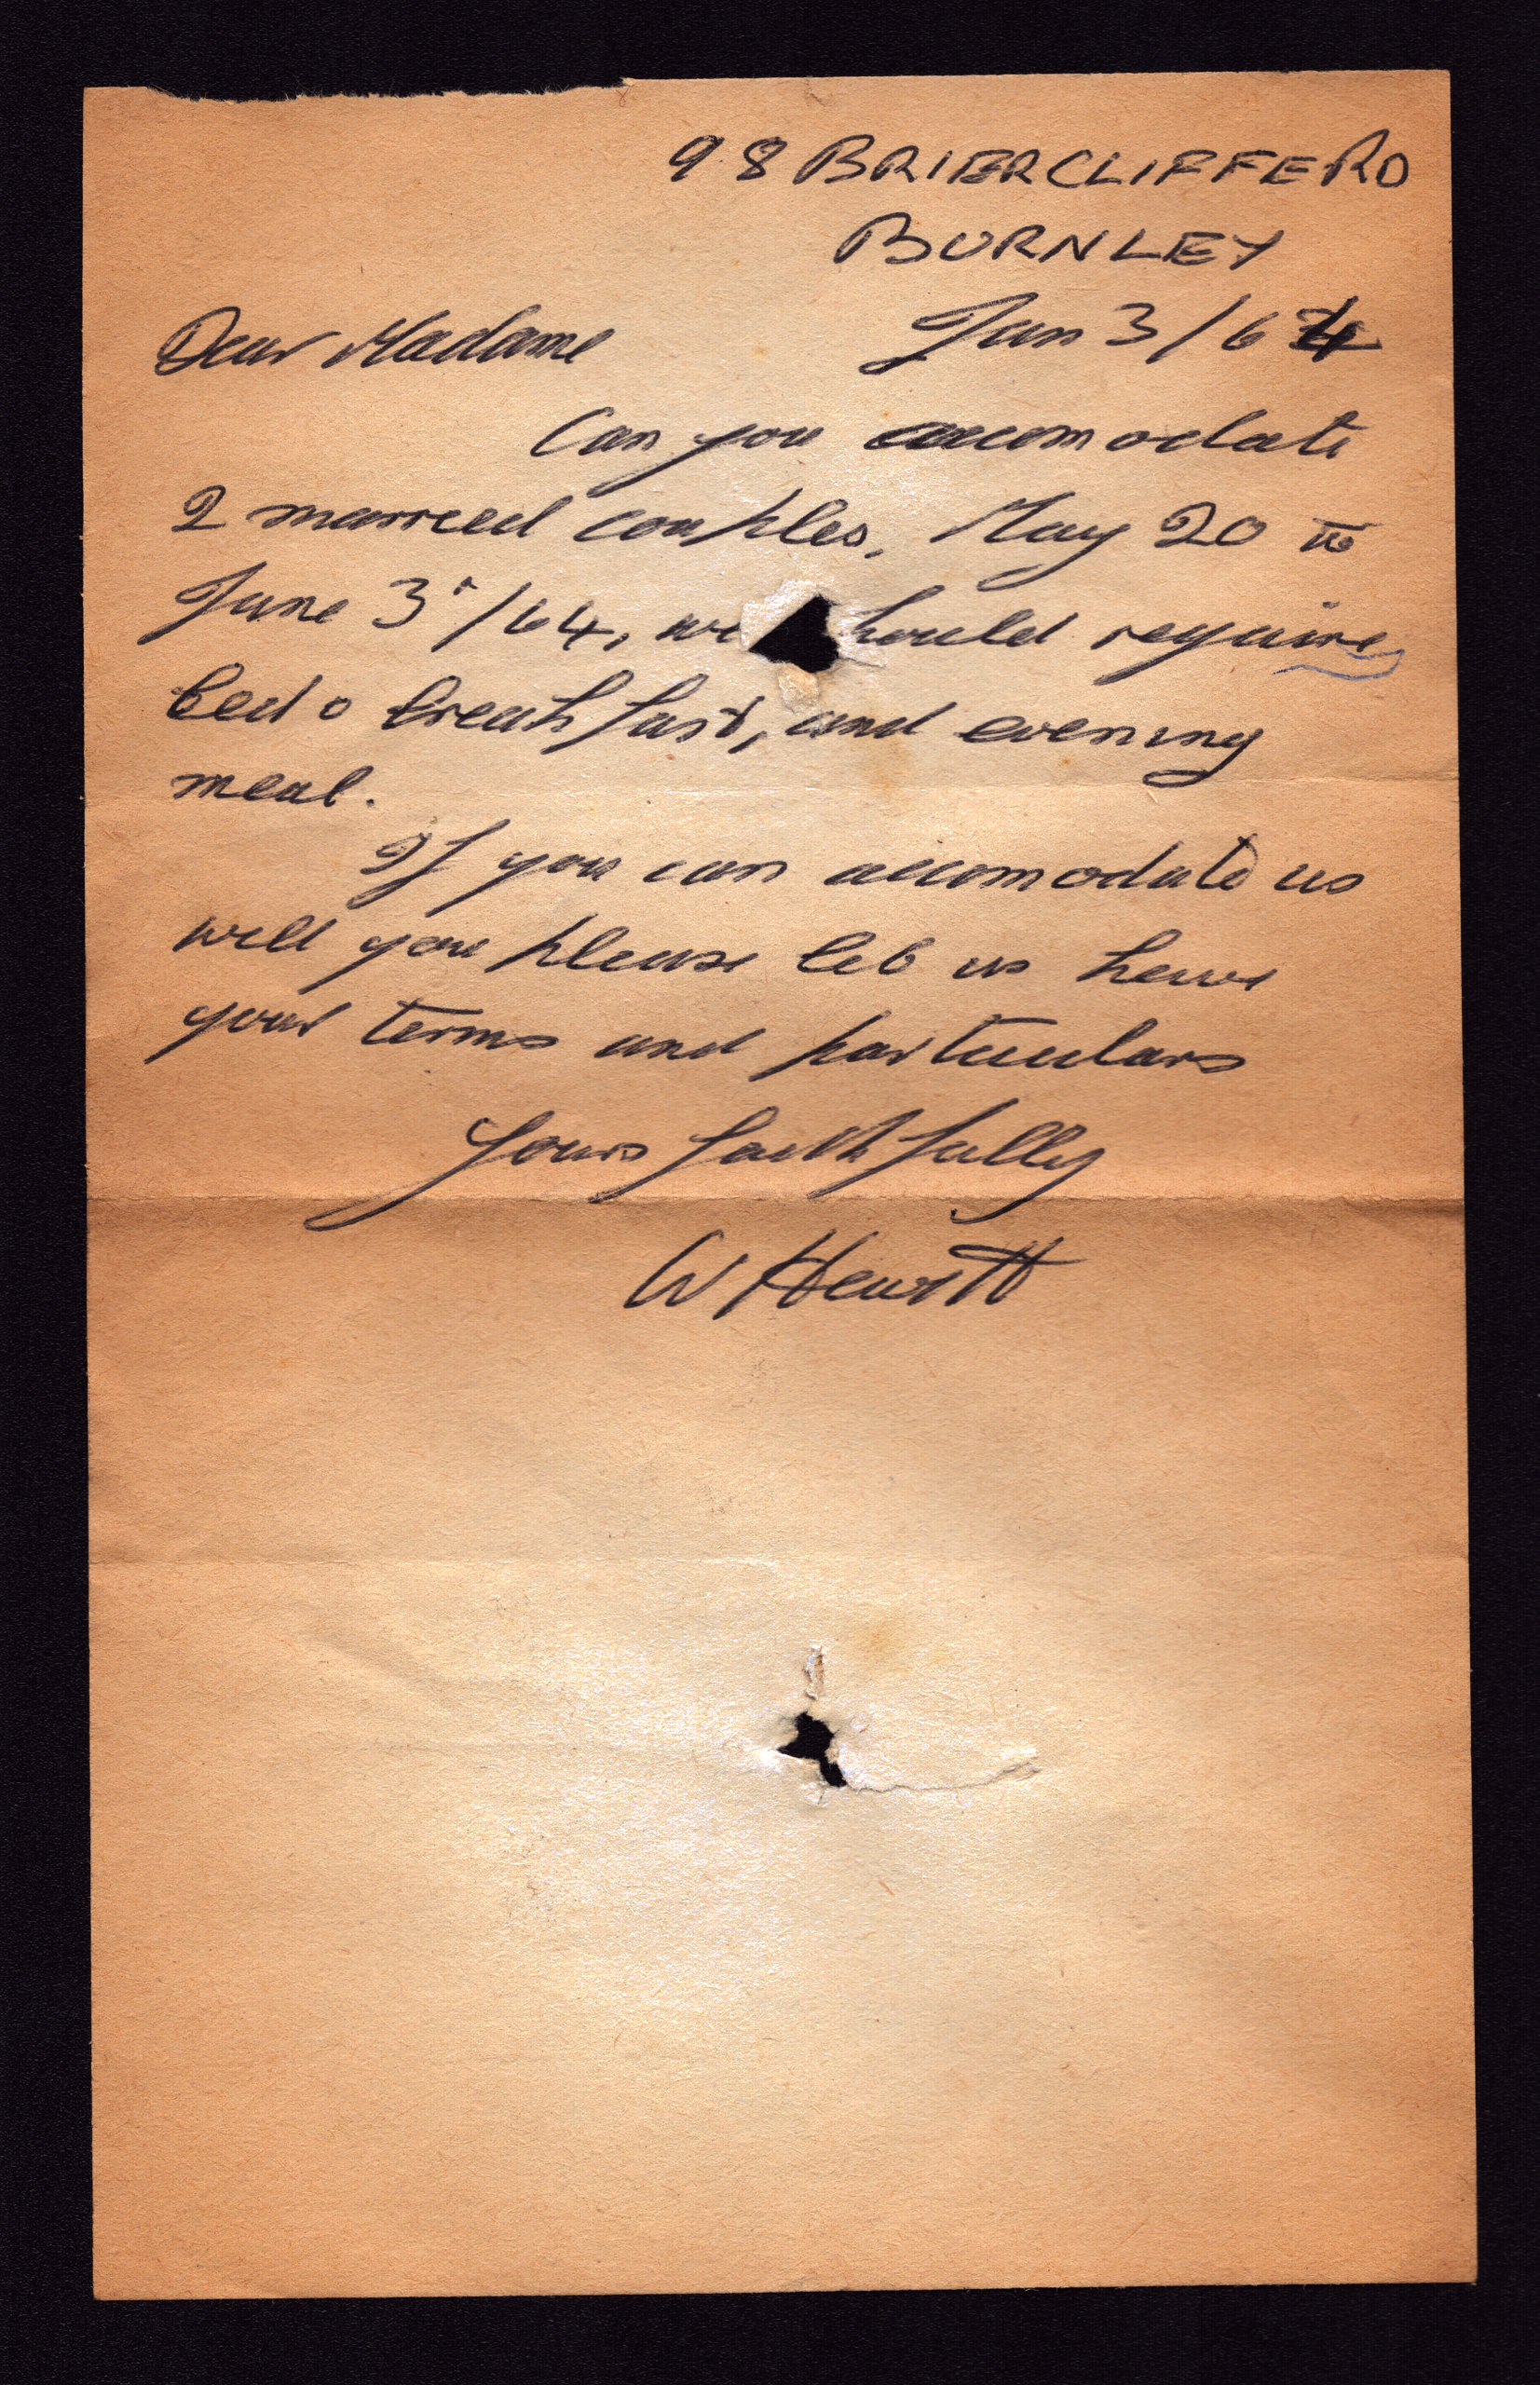 98 BRIERCLIFFE RD
BURNLEY
Dear Madame Jan 3/64
Can you accomodate
2 married couples, May 20 to
June 3/64, we should require
bed & breakfast, and evening
meal.
If you can accomodate us
will you please let us have
your terms and particulars
Yours faithfully
W Hewitt